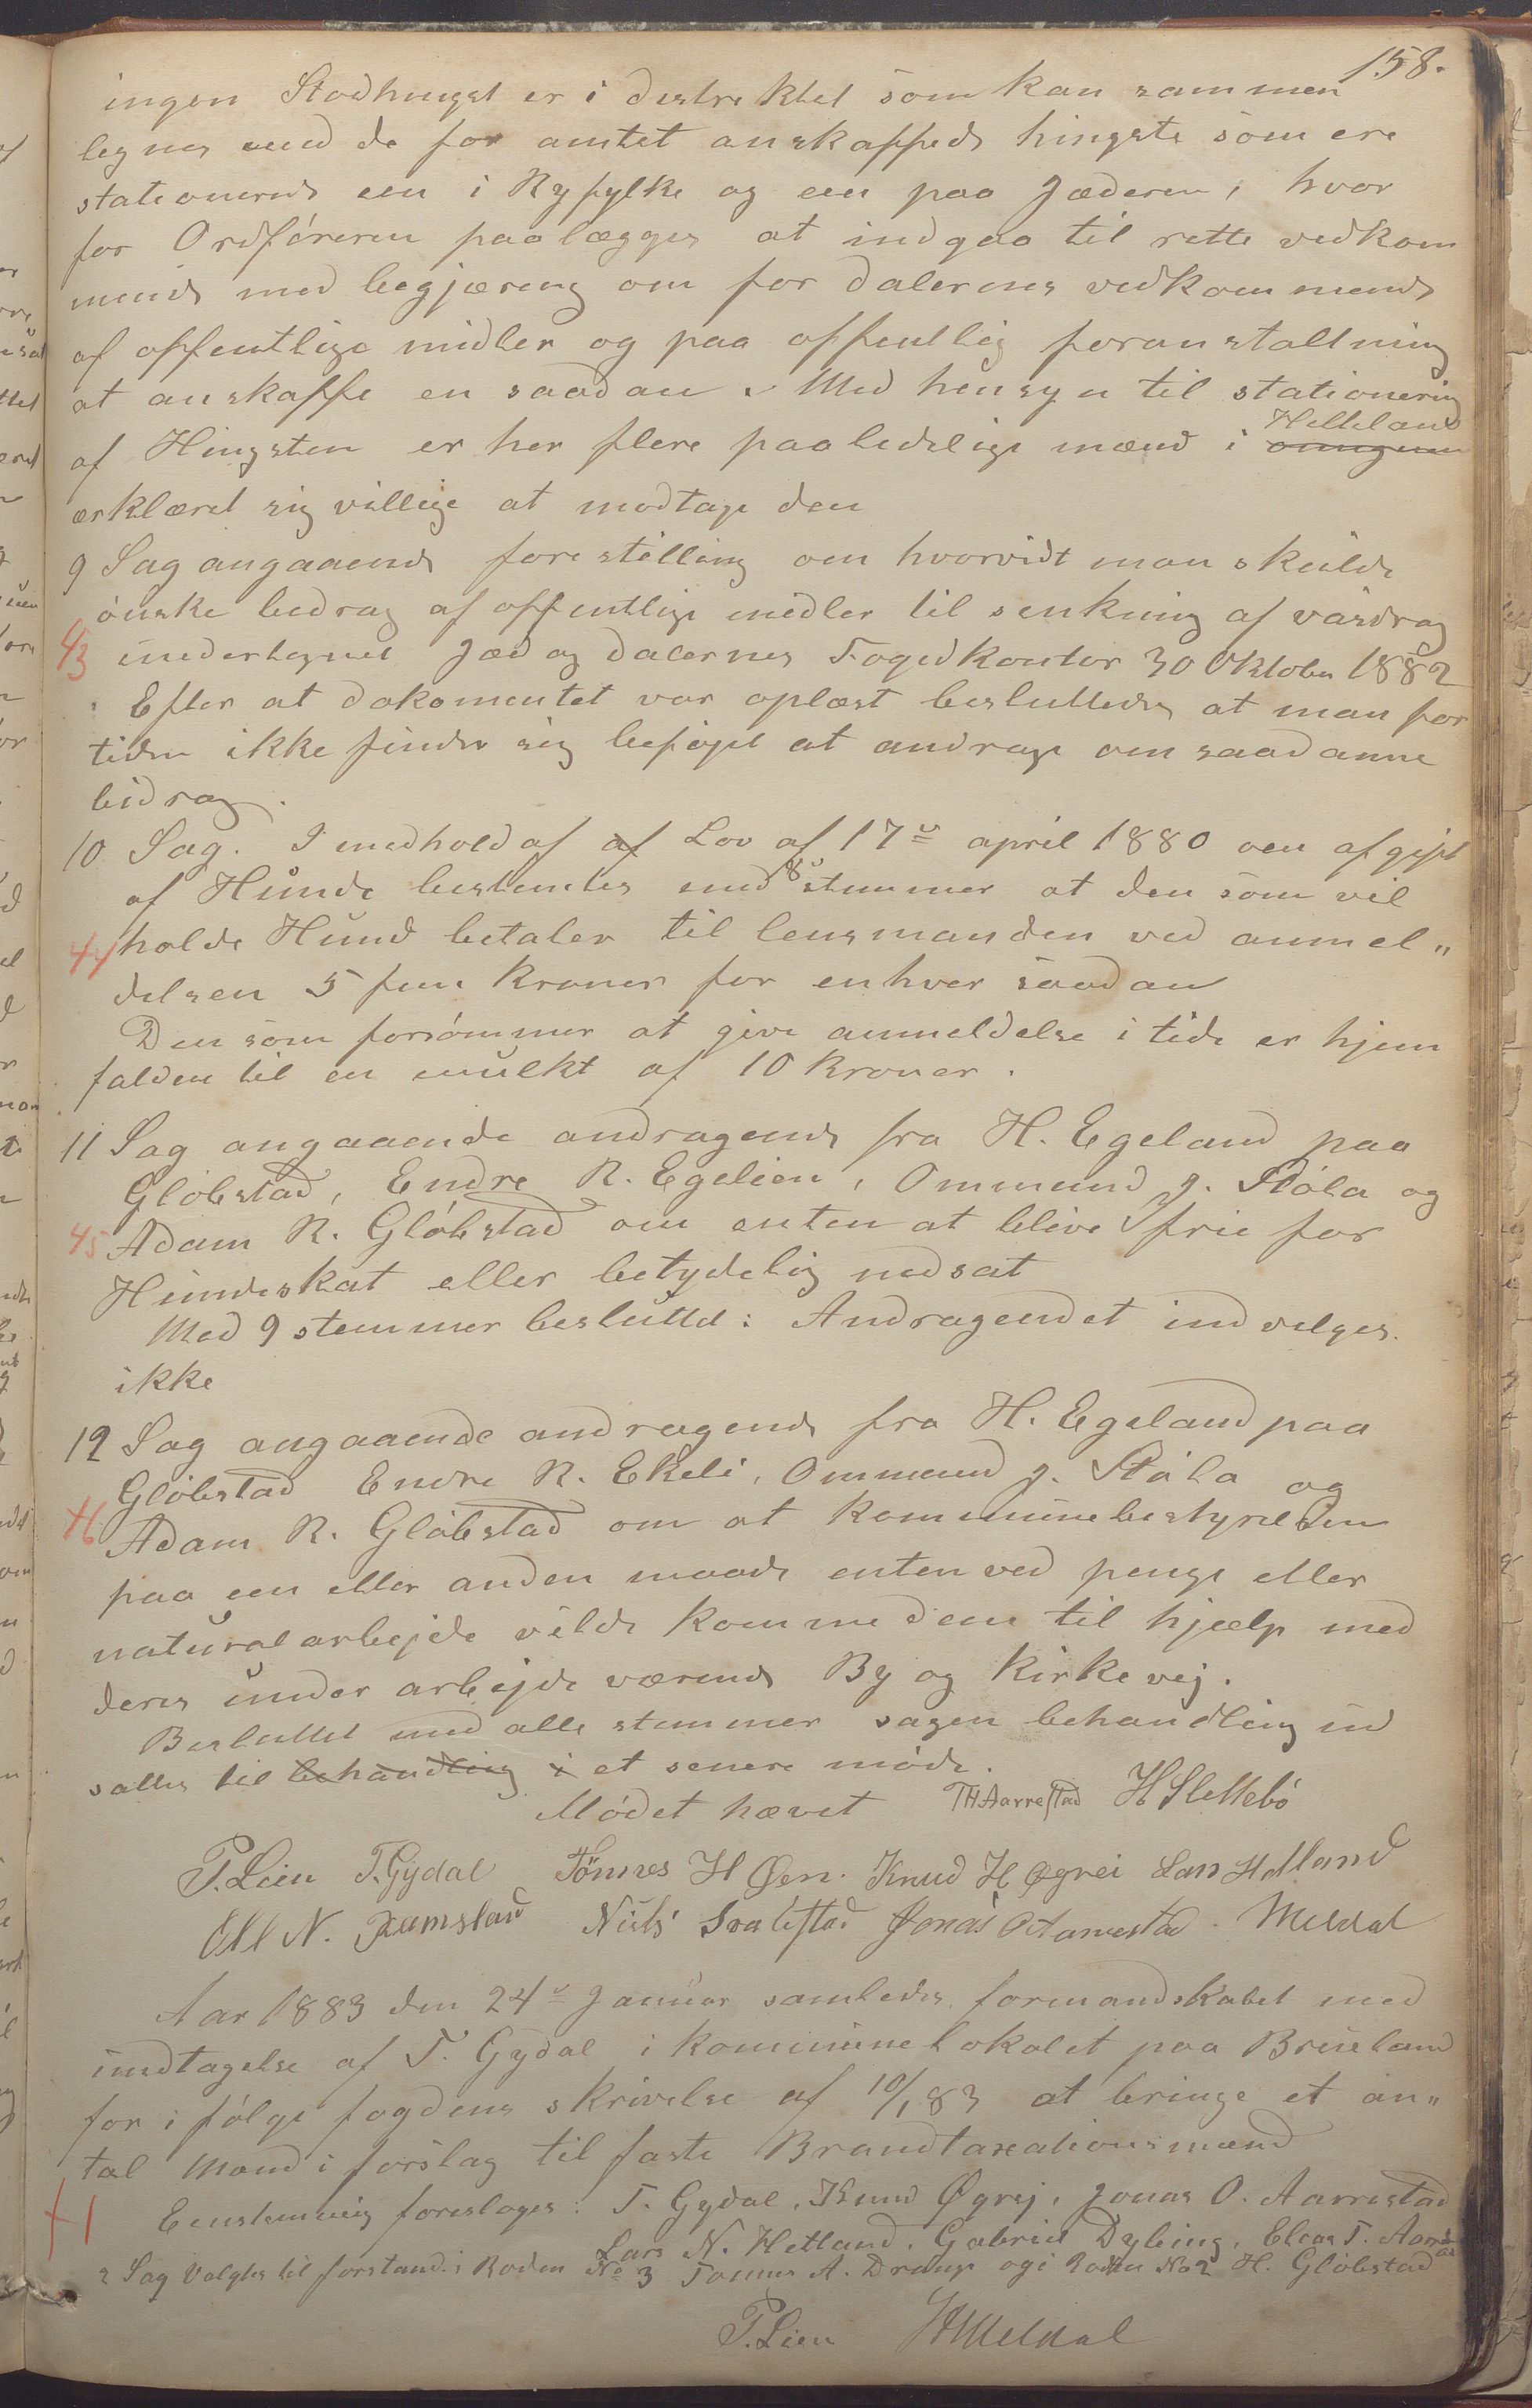 158.
ingen Stodhingst er i destriktet som kan sammen
lignes med de for amtet anskaffede hingste som ere
stationerede een i Ryfylke og een paa Jæderen, hvor
for Ordføreren paalægges at indgaa til rette vedkom
mende med begjæring om for dalernes vedkommende
af offentlige midler og paa offentlig foranstaltning
at anskaffe en saadan. Med hensyn til stationering
af Hingsten er her flere paalidelige mænd i Helleland
erklæret sig villige at modtage den
9 Sag angaaende forestilling om hvorvidt man skulde
ønske bedrag af offentlige midler til senkning af vasdrag
43 undertegnet Jæd og dalernes Fogedkontor 30 Oktober 1882
Efter at dokomentet var oplæst besluttedes at man for
tiden ikke finder sig beføget at andrage om saadanne
bidrag.
10 Sag. I medhold af af Lov af 17de april 1880 om afgift
af Hunde bestemtes med 8 stemmer at den som vil
44 holde Hund betaler til lensmanden ved anmel„
delsen 5 fem kroner for enhver saadan
Den som forsømmer at give anmeldelse i tide er hjem
falden til en mulkt af 10 kroner.
11 Sag angaaende andragende fra H. Egeland paa
Gløbstad, Endre R. Egelien, Ommund J. Støla og
45 Adam R. Gløbstad om enten at blive frie for
Hundeskat eller betydelig nedsat
Med 9 stemmer besluttet: Andragendet indvelges
ikke
12 Sag angaaende andragende fra H. Egeland paa
Gløbstad Endre R. Ekeli, Ommund J. Støla og
46 Adam R. Gløbstad om at kommunebestyrelsen
paa een eller anden maade enten ved penge eller
naturalarbejde vilde komme dem til hjælp med
deres under arbejde værende By og Kirkevej.
Besluttet med alle stemmer sagen behandling ud
sættes til behandling i et senere møde.
Mødet hævet TH Aarrestad H Slettebø
P. Lien T. Gydal Tönnes H Øen. Knud H Øgrei Lars Hetland
Oll N. Ramslan Niels Svalestad Jonas O Aarrestad. Meldal
Aar 1883 den 24de Januar samledes formandskabet med
undtagelse af T. Gydal i kommunelokalet paa Breieland
for i følge fogdens skrivelse af 10/1 83 at bringe et an„
tal Mænd i forslag til faste Brandtaxationsmænd
+1 Eenstemmig foreslages: T. Gydal, Knud Øgrej, Jonas O. Aarrestad
Lars N. Hetland, Gabriel Dybing, Elias T. Aarrestad
2 Sag Valgtes til forstand. i Roden No 3 Tønnes A. Drange og i Roden No 2 H. Gløbstad
P. Lien Meldal